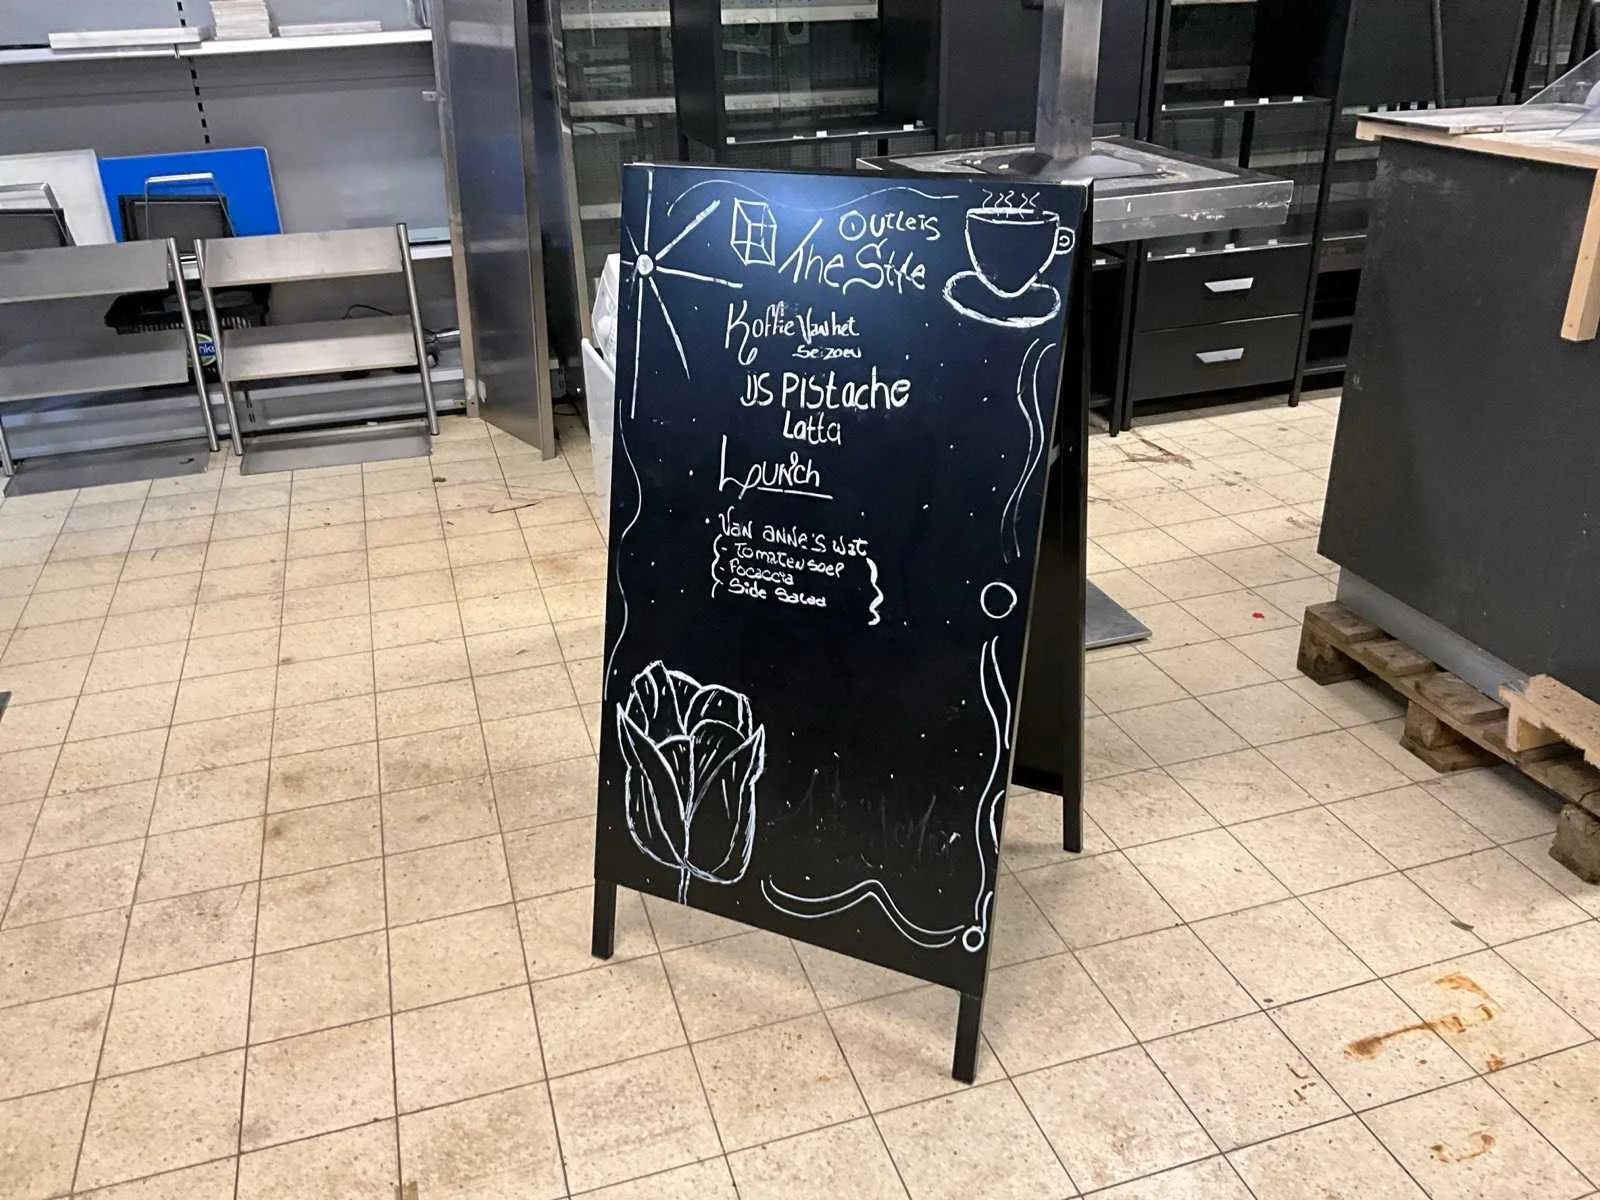 Outleis
The Style
Koffie Van het
seizoen
ijs Pistache
Latta
Lunch
Van anne's wat
- Tomaten soep
- Focaccia
- Side Salad